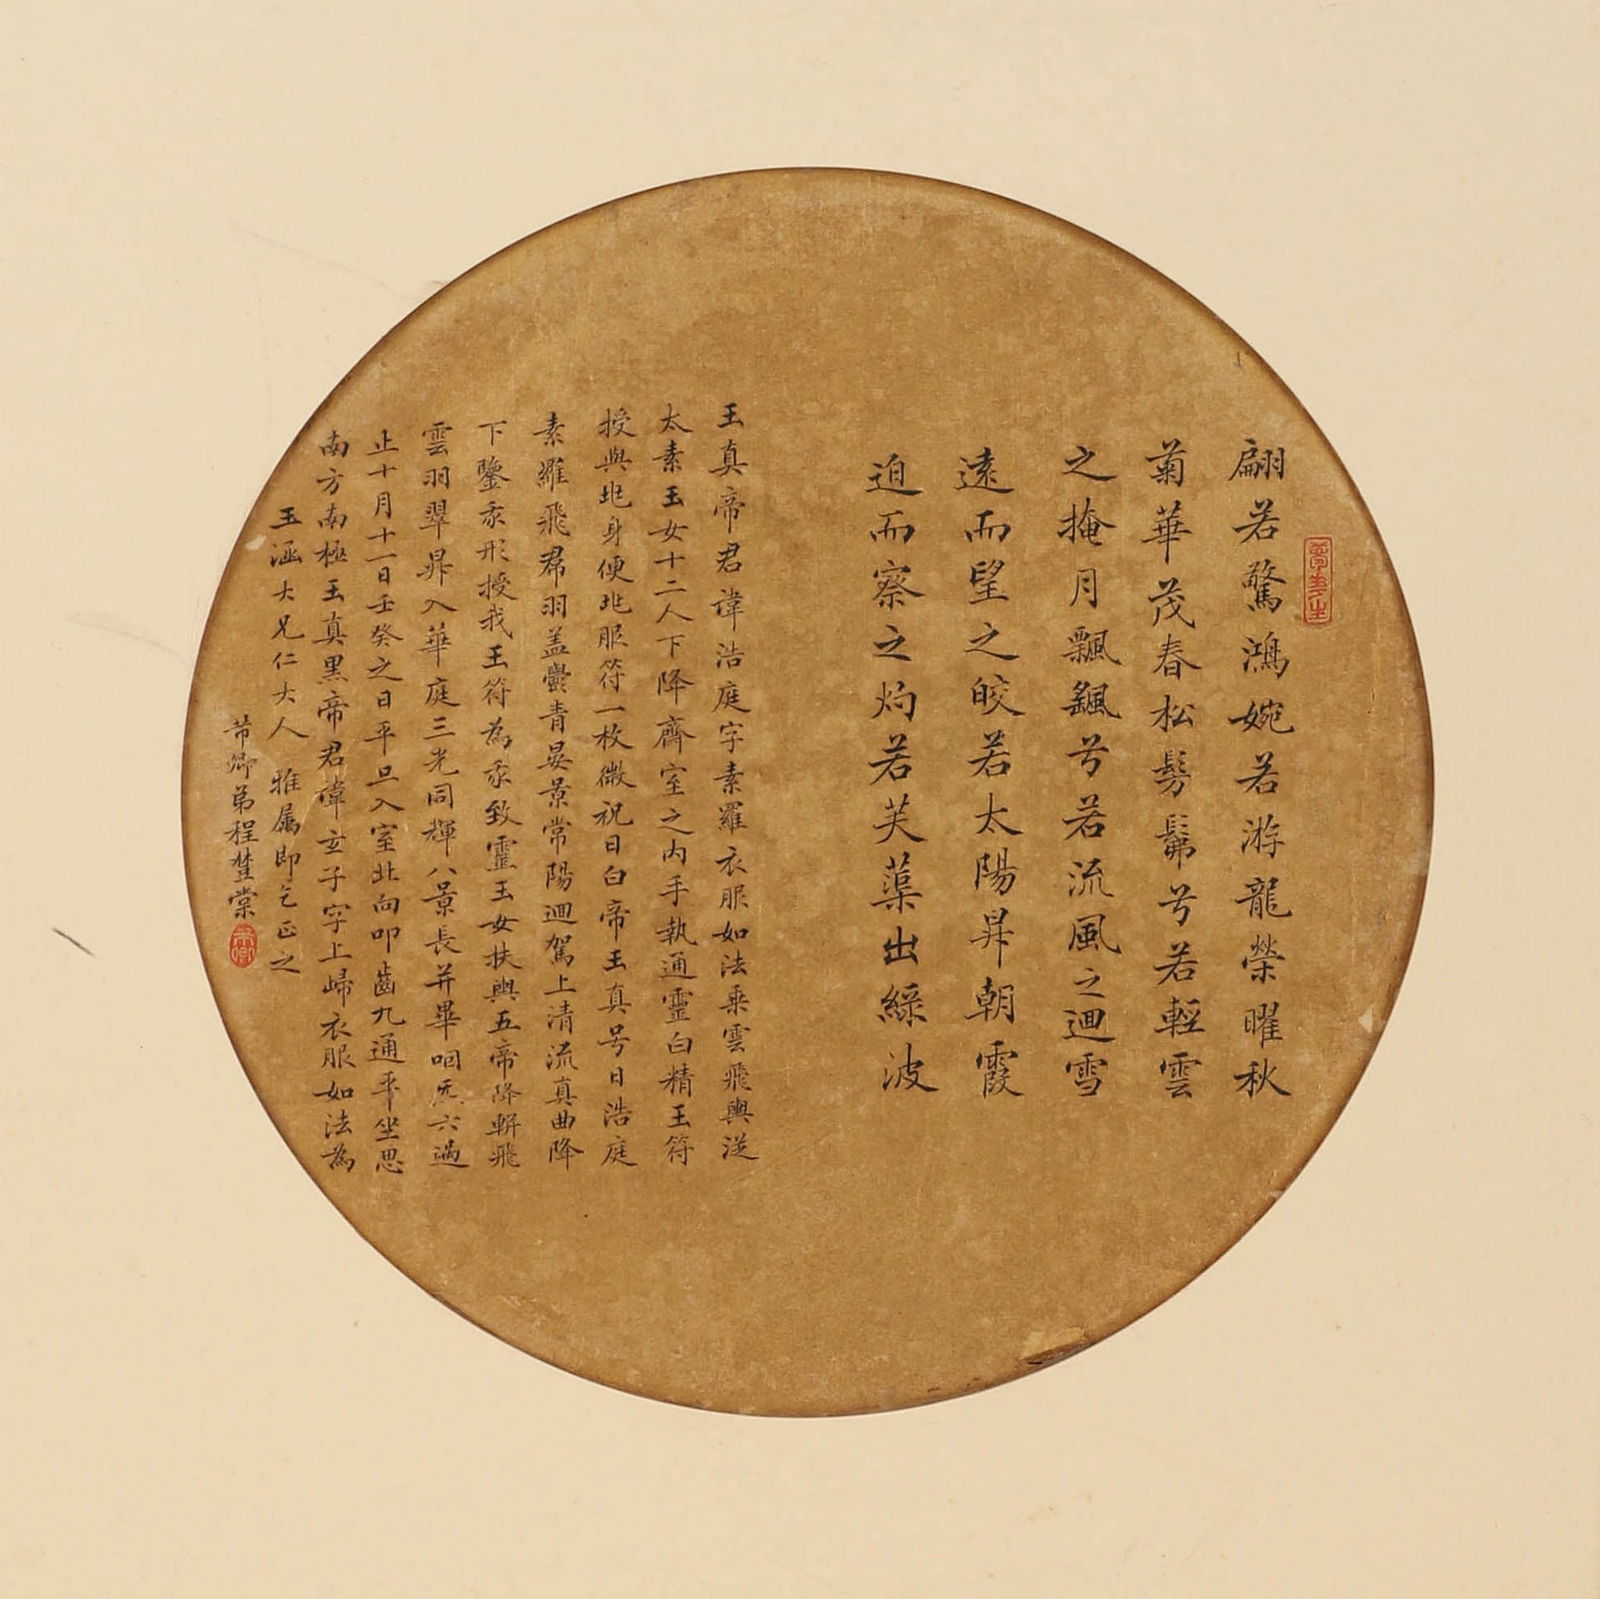 翩若驚鴻婉若游龍榮曜秋
菊華茂春松髣髴兮若輕雲
之掩月飄颻兮若流風之迴雪
遠而望之皎若太陽昇朝霞
迫而察之灼若芙蕖出綠波
玉真帝君諱浩庭字素羅衣服如法乘雲飛輿從
太素玉女十二人下降齋室之內手執通靈白精玉符
授與兆身便兆服符一枚微祝曰白帝玉真号曰浩庭
素羅飛帬羽盖鬱青晏景常陽迴駕上清流真曲降
下鑒我形授我玉符為我致靈玉女扶輿五帝降軿飛
雲羽翠昇入華庭三光同輝八景長并畢咽炁六過
止十月十一日壬癸之日平旦入室北向叩齒九通平坐思
南方南極玉真黑帝君諱玄子字上歸衣服如法為
玉涵大兄仁大人 雅屬即乞正之
芾卿弟程棠